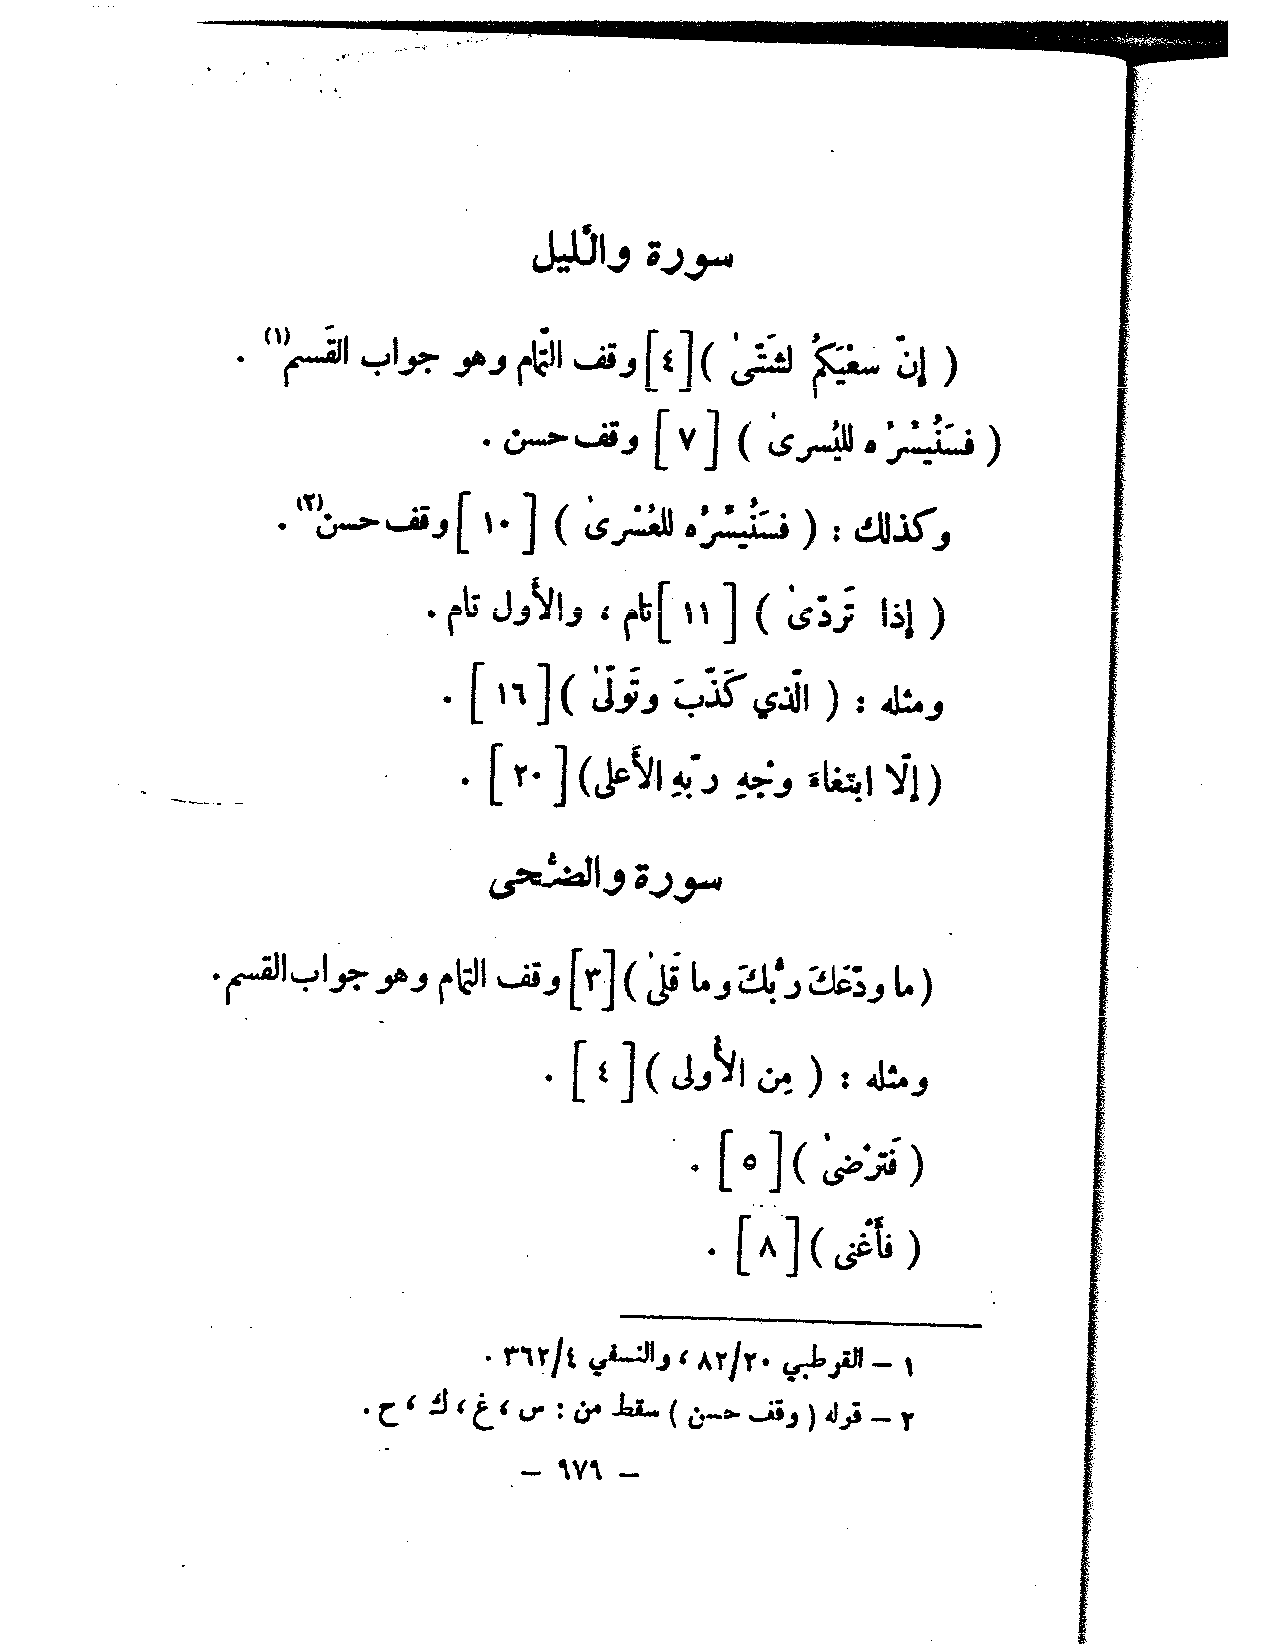 سورة والّليل
( إنّ سعْيَكُمْ لشَتّىٰ ) [٤] وقف التّمام وهو جواب القَسم(١) .
( فسَنُيسْرُه لليُسرىٰ ) [ ٧ ] وقف حسن .
وكذلك : ( فسَنُيسْرُه للعُسْرىٰ ) [ ١٠ ] وقف حسن(٢) .
( إذا تَردّىٰ ) [ ١١ ] تام ، والأول تام .
ومثله : ( الّذي كَذّبَ وتَولّىٰ ) [ ١٦ ] .
( إلّا ابتغاءَ وجْهِ ربّهِ الأعلى ) [ ٢٠ ] .
سورة والضّحى
( ما ودّعَكَ ربُّكَ وما قَلىٰ ) [٣] وقف التمام وهو جواب القسم .
ومثله : ( مِن الأولى ) [ ٤ ] .
( فَترْضىٰ ) [ ٥ ] .
( فأَغْنى ) [ ٨ ] .
١ – القرطبي ٨٢/٢٠ ، والنسفي ٣٦٢/٤ .
٢ – قوله ( وقف حسن ) سقط من : س ، غ ، ك ، ح .
– ٩٧٩ –